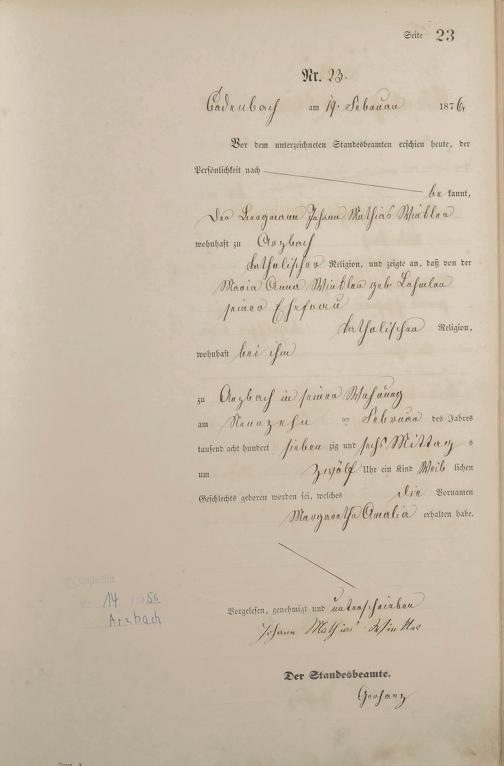 Seite 23
Nr. 23.
Cadenbach am 19. Februar 1876
Vor dem unterzeichneten Standesbeamten erschien heute, der
Persönlichkeit nach
be kannt,
Der Bergmann Johann Mathias Winkler
wohnhaft zu Arzbach
katholischer Religion, und zeigte an, daß von der
Maria Anna Winkler geb.
seiner Ehefrau
katholischer Religion,
wohnhaft bei ihm
zu Arzbach in seiner Wohnung
am Neunzehn ten Februar des Jahres
tausend acht hundert sieben zig und sechs Mittag s
um zwölf Uhr ein Kind Weib lichen
Geschlechts geboren worden sei, welches die Vornamen
Margaretha Amalia erhalten habe.
Vorgelesen, genehmigt und unterschrieben
Johann Mathias Winkler
Der Standesbeamte.
14 56
Arzbach